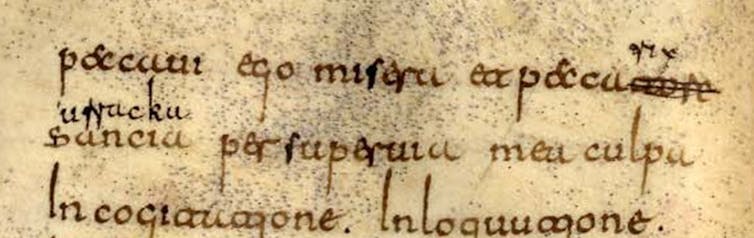 trix
peccaui ego misera et pecca
urracka
Sancia per superuia mea culpa
In cogitatione. In loquutione.